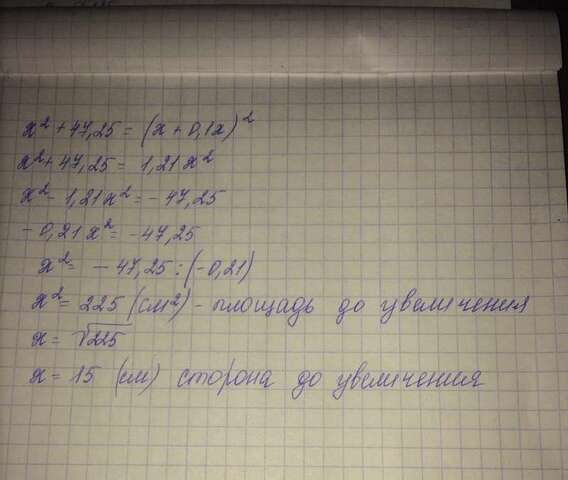 x² + 47,25 = (x + 0,1x)²
x² + 47,25 = 1,21x²
x² - 1,21x² = - 47,25
- 0,21x² = - 47,25
x² = - 47,25 : (- 0,21)
x² = 225 (см²) - площадь до увеличения
x = √225
x = 15 (см) сторона до увеличения